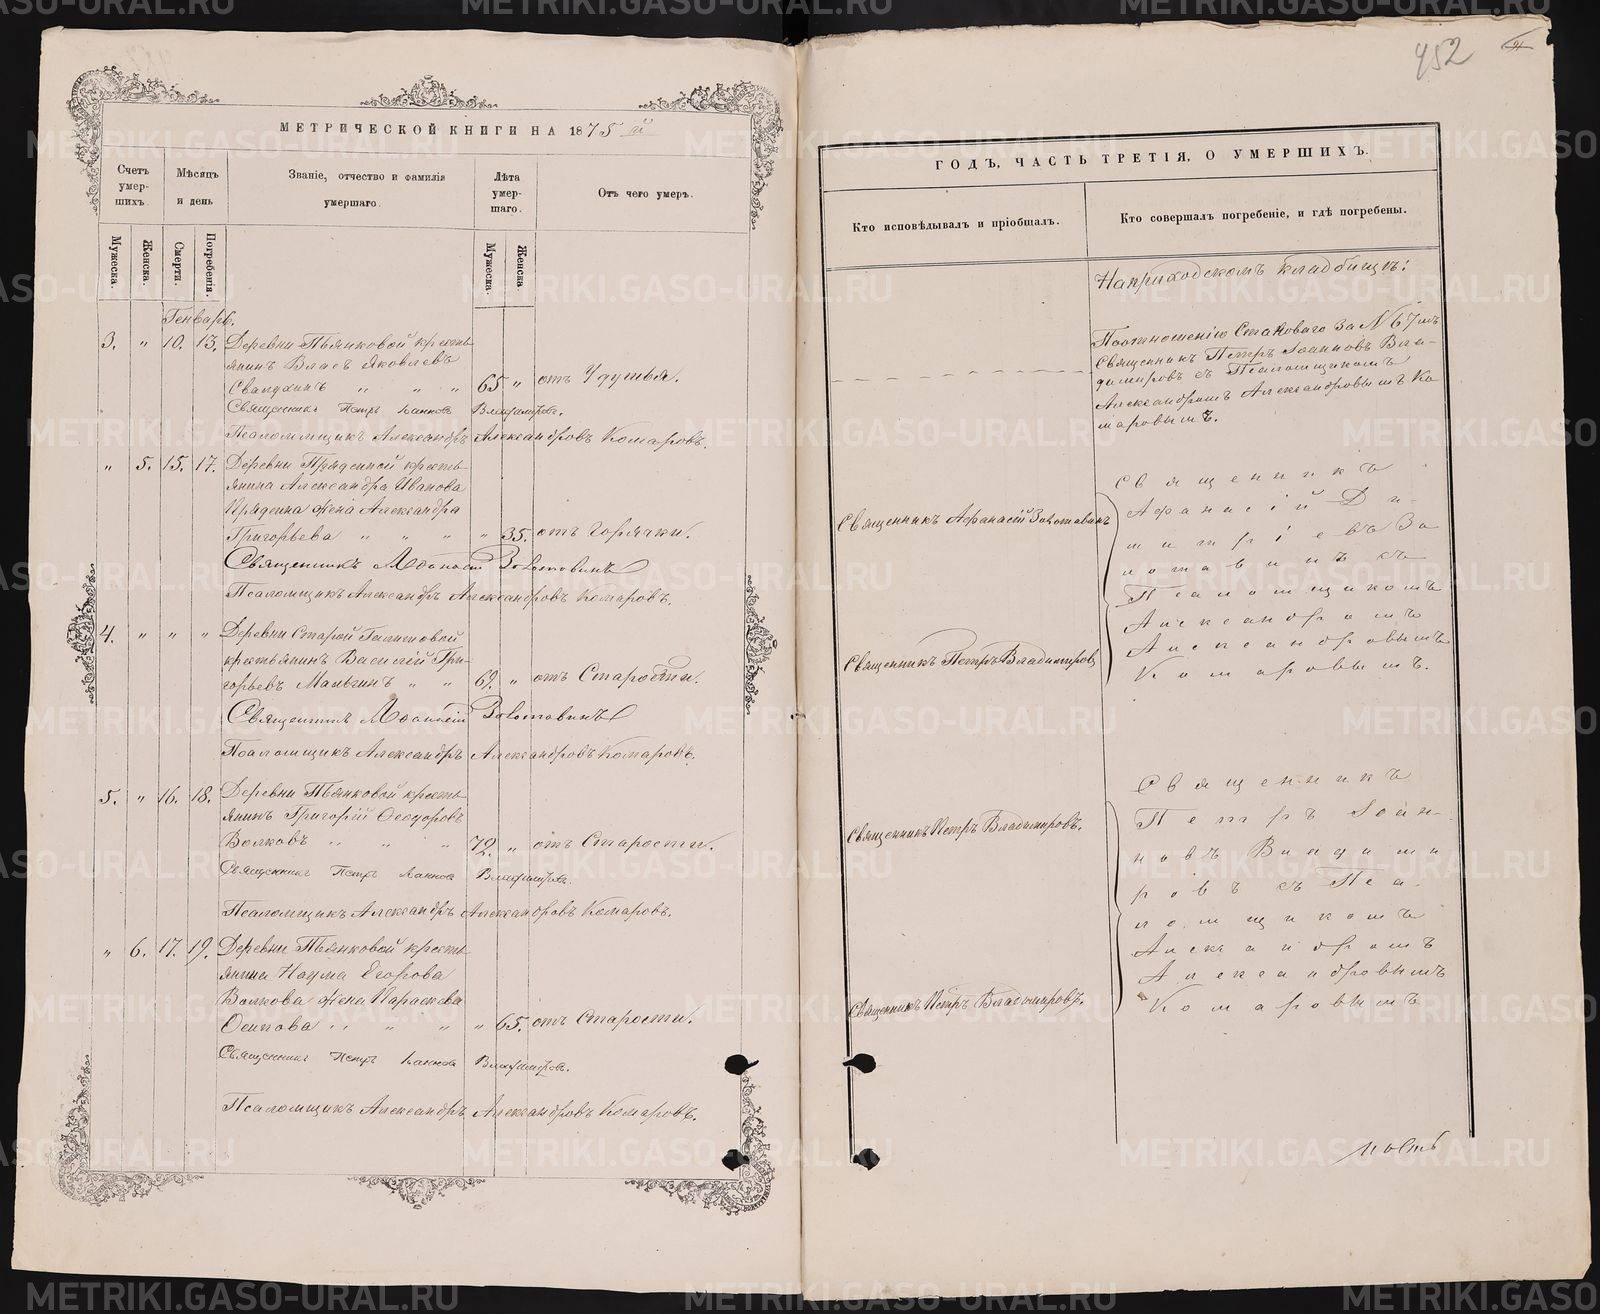 МЕТРИЧЕСКОЙ КНИГИ НА 1875 й
Счетъ умер-шихъ.
Мѣсяцъ и день
Званіе, отчество и фамилія умершаго.
Лѣта умер-шаго.
Отъ чего умеръ.
Мужеска.
Женска.
Смерти.
Погребенія.
Мужеска.
Женска.
Генварь.
3. " 10. 13. Деревни Пьянковой кресть-
янинъ Власъ Яковлевъ
" " " 65 " отъ Удушья.
Священникъ Петръ Іаннов Владимиров.
Псаломщикъ Александръ Александровъ Комаровъ.
" 5. 15. 17. Деревни Пряденной кресть-
янина Александра Иванова
Прядеина жена Александра
Григорьева " " " " 35. отъ Горячки.
Священникъ Афанасій Золотавинъ
Псаломщикъ Александръ Александровъ Комаровъ.
4. " " " Деревни Старой
крестьянинъ Василій Гри-
горьевъ Мальгинъ " " 69. " отъ Старости.
Священникъ Афанасій Золотавинъ
Псаломщикъ Александръ Александровъ Комаровъ.
5. " 16. 18. Деревни Пьянковой кресть-
янинъ Григорій Ѳеодоровъ
Волковъ " " " 72. " отъ Старости.
Священникъ Петръ Іаннов Владимиров.
Псаломщикъ Александръ Александровъ Комаровъ.
" 6. 17. 19. Деревни Пьянковой кресть-
янина Наума Егорова
Волкова жена Параскева
Осипова " " " " 65. отъ Старости.
Священникъ Петръ Іаннов Владимиров.
Псаломщикъ Александръ Александровъ Комаровъ.
452
ГОДЪ, ЧАСТЬ ТРЕТІЯ, О УМЕРШИХЪ.
Кто исповѣдывалъ и пріобщалъ.
Кто совершалъ погребеніе, и гдѣ погребены.
На приходскомъ кладбищѣ:
По отношенію Становаго за № 67мъ
Священникъ Петръ Іоанновъ Вла-
димировъ съ Псаломщикомъ
Александромъ Александровымъ Ко
маровымъ.
Священникъ Афанасій Золотавинъ
Священникъ
Афанасій Ди-
митріевъ Зо
лотавинъ съ
Псаломщикомъ
Александромъ
Александровымъ
Комаровымъ.
Священникъ Петръ Владимиров
Священникъ Петръ Владимировъ.
Священникъ
Петръ Іоан-
новъ Владими
ровъ съ Пса-
ломщикомъ
Александромъ
Александровымъ
Комаровымъ
Священникъ Петръ Владимировъ.
METRIKI.GASO-URAL.RU